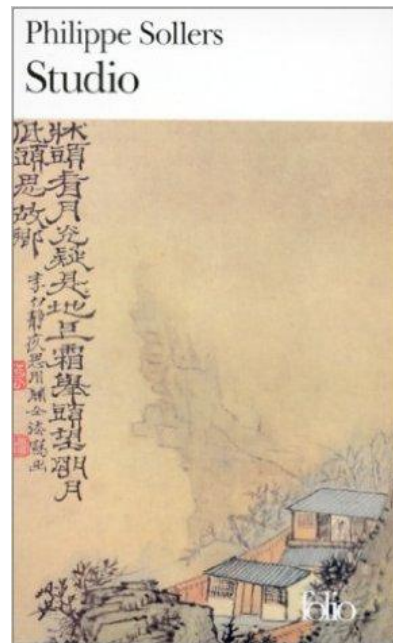 Philippe Sollers
Studio
牀頭看月光疑是地上霜舉頭望朙月
低頭思故鄉
李白靜夜思用關仝法寫
folio